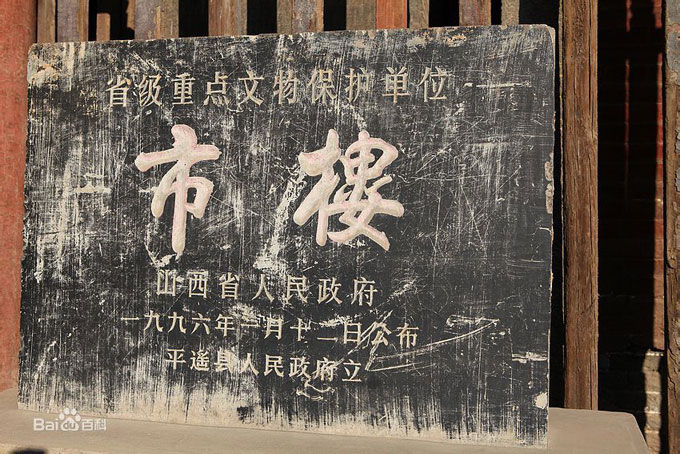 省级重点文物保护单位
市楼
山西省人民政府
一九九六年一月十二日公布
平遥县人民政府立
Bai百科